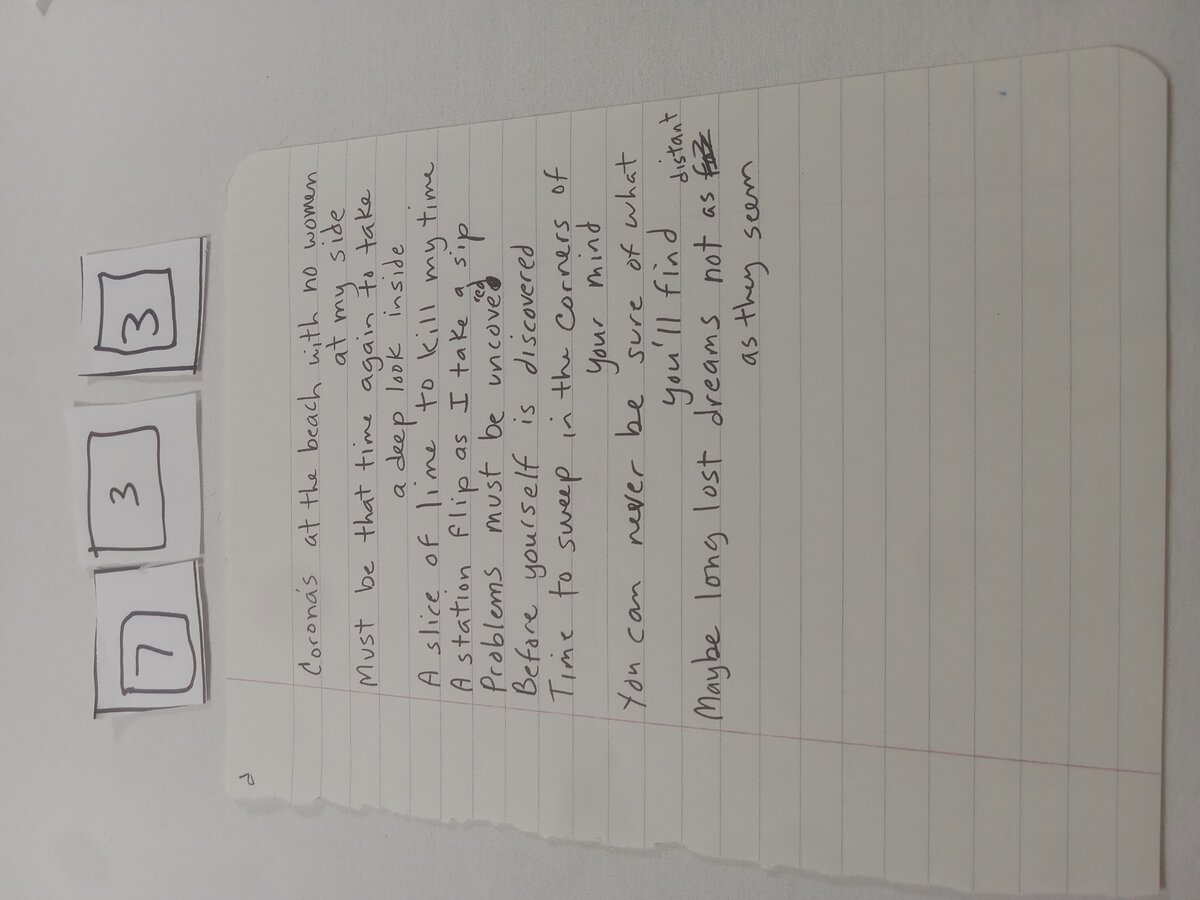 7 3 3
Corona's at the beach with no women
at my side
Must be that time again to take
a deep look inside
A slice of lime to kill my time
A station flip as I take a sip
Problems must be uncovered
Before yourself is discovered
Time to sweep in the corners of
your mind
You can never be sure of what
you'll find
Maybe long lost dreams not as distant
as they seem